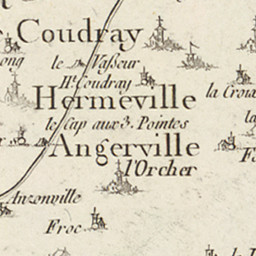 Coudray
ong
le Vasseur
Ht. Coudray
Hermeville
la Croix
le Cap aux 3. Pointes
la
Angerville
l'Orcher
Anzonville
Froc